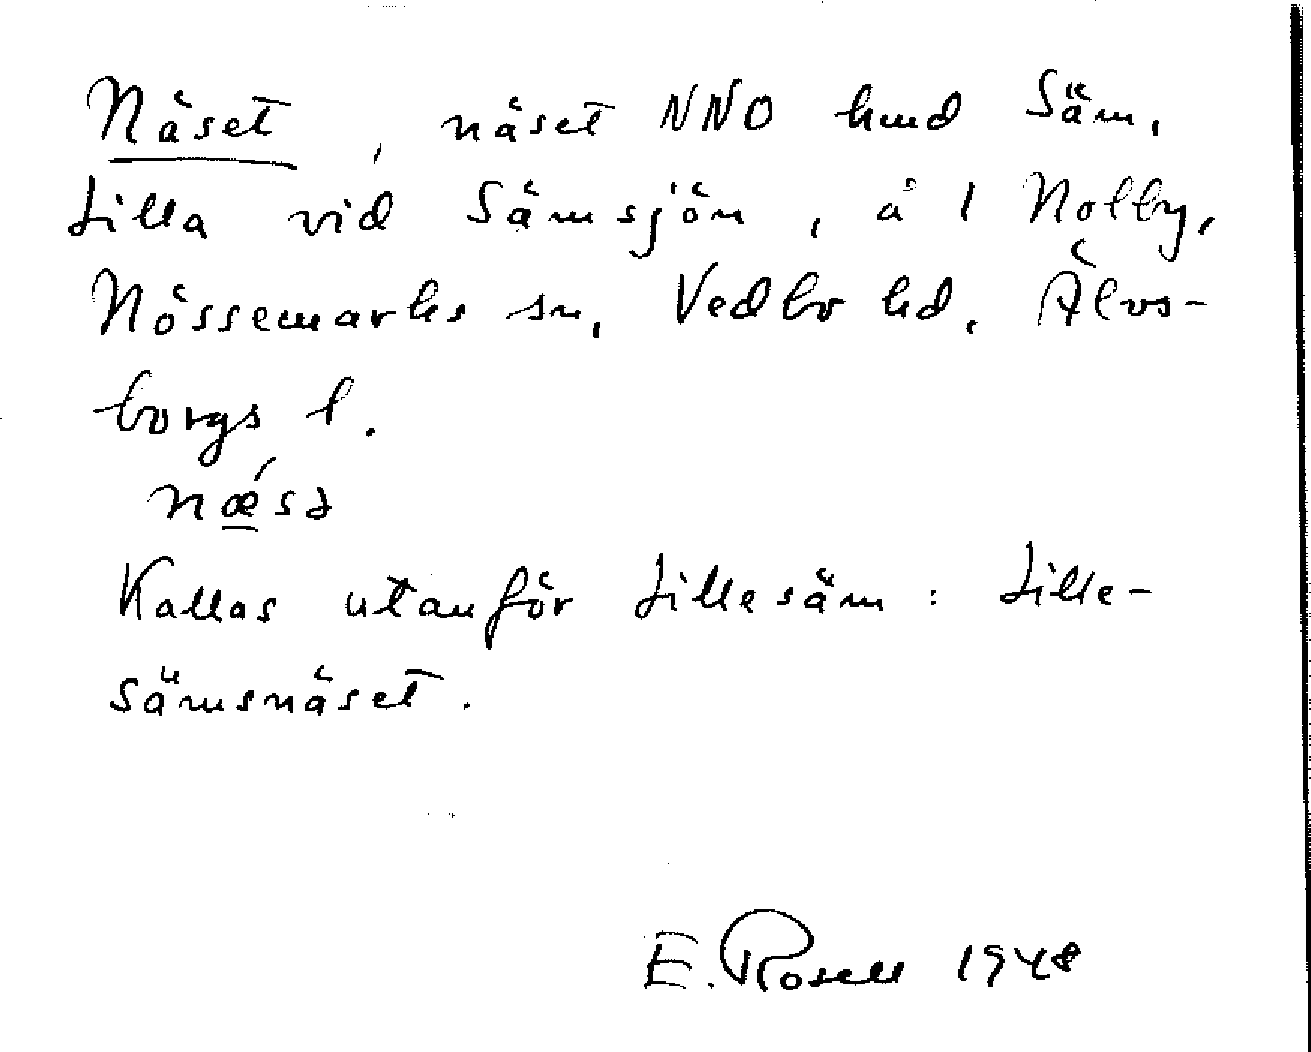 Näset, näset NNO hmd Säm,
Lilla vid Sämsjön, å 1 Nolby,
Nössemarks sn, Vedbo hd. Älvs-
borgs l.
næ´sə
Kallas utanför Lillesäm: Lille-
sämsnäset.
E. Rosell 1948